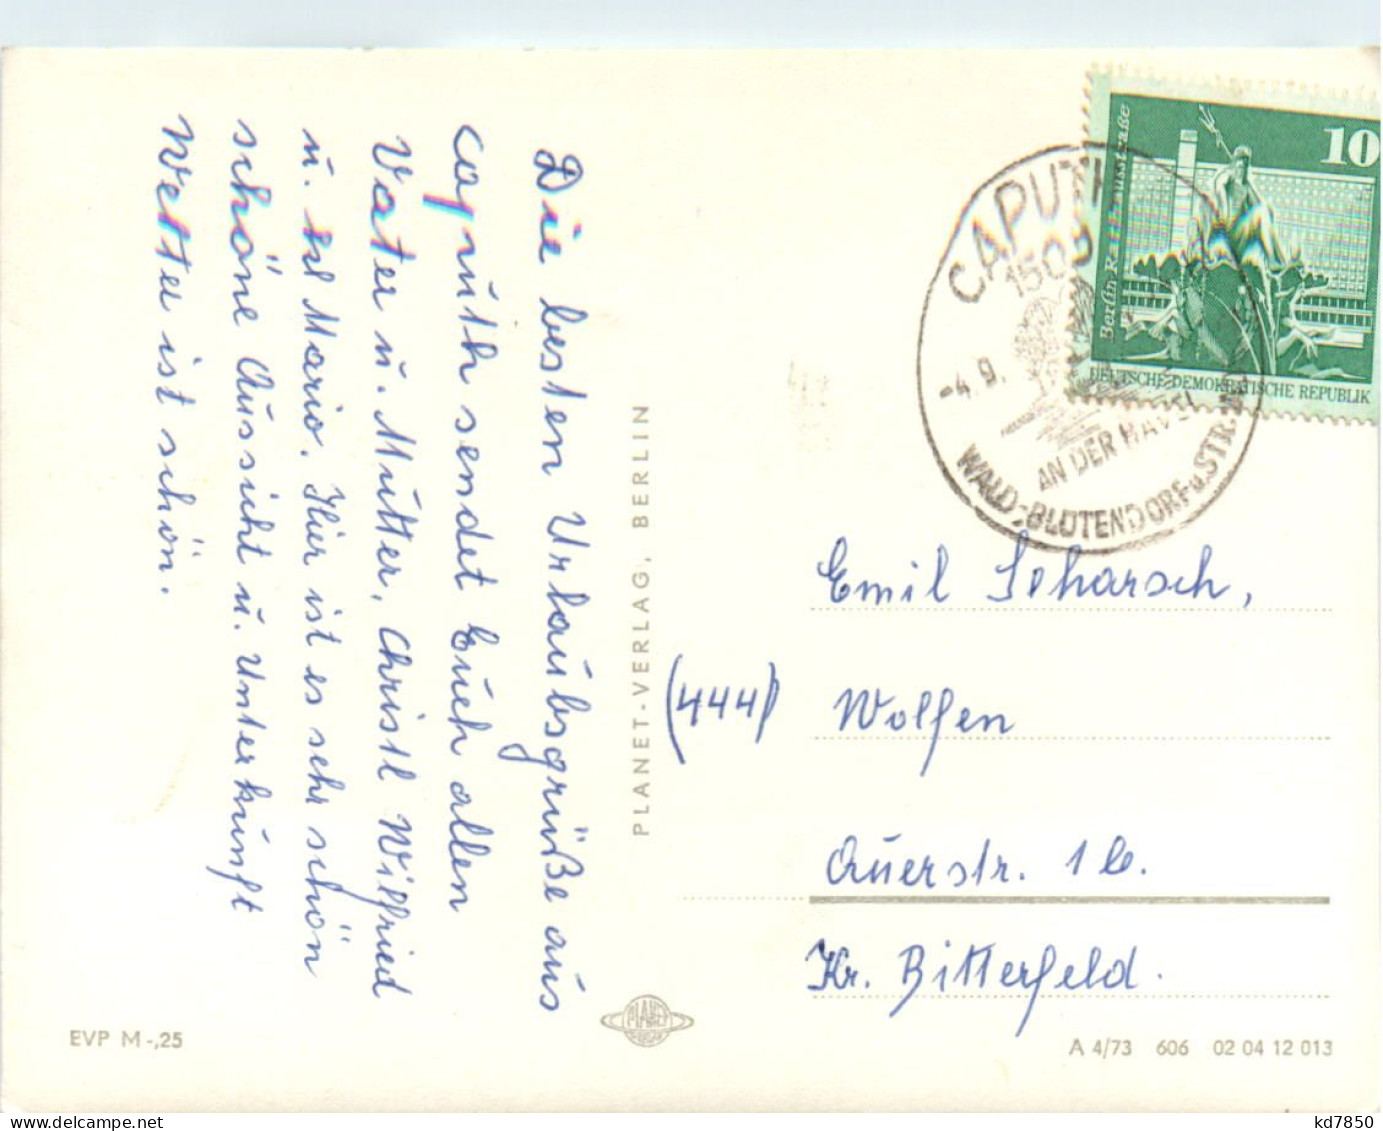 Die besten Urlaubsgrüße aus
Caputh sendet Euch allen
Vater u. Mutter, Christl Wilfried
u. Mario. Hier ist es sehr schön
schöne Aussicht u. Unterkunft
Wetter ist schön.
EVP M -,25
PLANET-VERLAG, BERLIN
PLANET
10
Berlin
DEUTSCHE DEMOKRATISCHE REPUBLIK
CAPUTH
1509
-4. 9.
AN DER HAVEL
WALD-, BLÜTENDORF u. STR
Emil Scharsch,
(444) Wolfen
Auerstr. 1b.
Kr. Bitterfeld.
A 4/73 606 02 04 12 013
kd7850